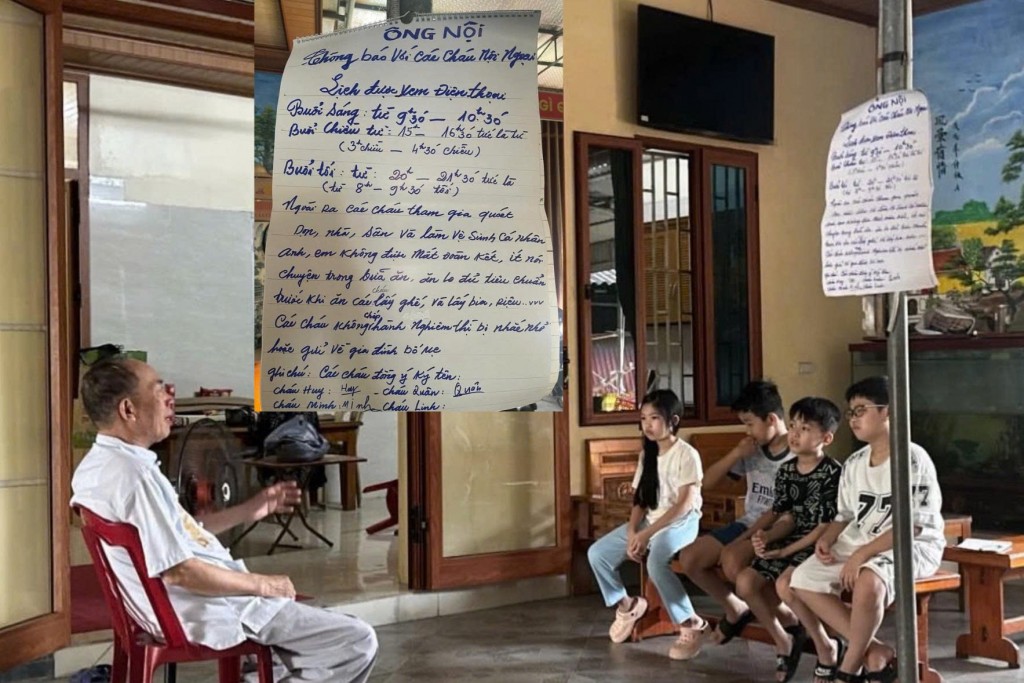 ÔNG NỘI
Thông báo Với các cháu Nội Ngoại
Lịch được xem Điện thoại
Buổi sáng: từ 9h30 — 10h30
Buổi chiều từ: 15h — 16h30 tức là từ
(3h chiều — 4h30 chiều)
Buổi tối: từ: 20h — 21h30 tức là
(từ 8h — 9h30 tối)
Ngoài ra các cháu tham gia quét
Dọn, nhà, sân và làm vệ sinh cá nhân
Anh, em không được mất đoàn kết, ít nói
chuyện trong bữa ăn, ăn lo đủ tiêu chuẩn
trước khi ăn các cháu lấy ghế, và lấy bia, rượu...vvv
Các cháu không chấp hành nghiêm thì bị nhắc nhở
hoặc gửi về gia đình bố mẹ
ghi chú: Các cháu đồng ý ký tên:
cháu Huy: Huy - cháu Quân: Quân
cháu Minh: Minh cháu Linh:
ÔNG NỘI
Emirates
77
77